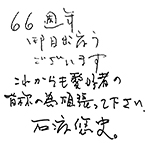 66周年
御目出度う
ございます
これからも愛好者の
首都の為頑張って下さい
石流悠史。